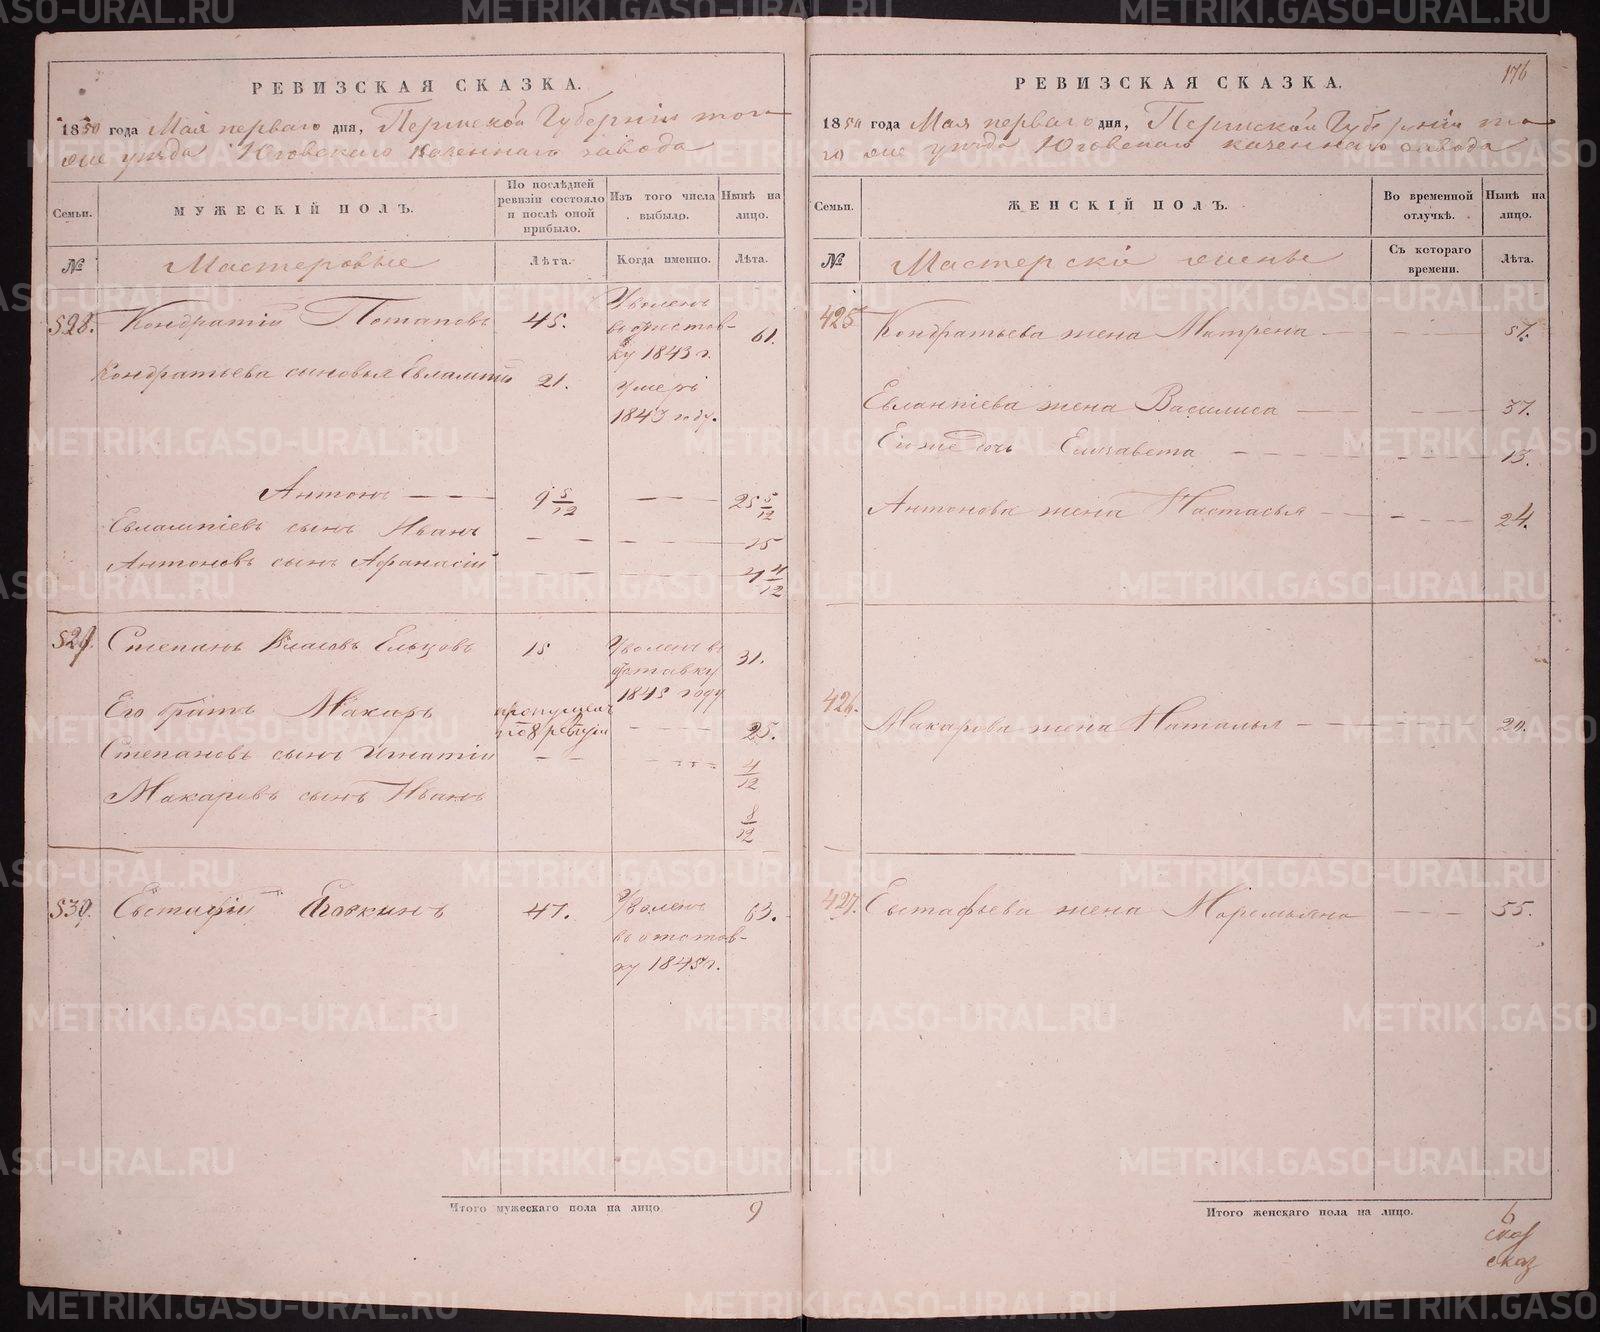 РЕВИЗСКАЯ СКАЗКА.
1850 года Мая перваго дня, Пермской Губерніи того
же уѣзда Юговскаго казеннаго завода
Семьи.
МУЖЕСКІЙ ПОЛЪ.
По послѣдней ревизіи состояло и послѣ оной прибыло.
Изъ того числа выбыло.
Нынѣ на лицо.
№
Мастеровые
Лѣта.
Когда именно.
Лѣта.
528. Кондратій Потаповъ 45. Уволенъ въ отставку 1843 г. 61.
Кондратьева сыновья Евлампій 21. Умеръ 1843 году.
Антонъ 9 5/12 25 5/12
Евлампіевъ сынъ Иванъ 15
Антоновъ сынъ Афанасій 4 4/12
529. Степанъ Власовъ Ельцовъ 15 Уволенъ въ отставку 1845 году 31.
Его братъ Макаръ пропущенъ по 8 ревизіи 25.
Степановъ сынъ Игнатій 4/12
Макаровъ сынъ Иванъ 8/12
530. Евстафій 47. Уволенъ въ отставку 1845 г. 63.
Итого мужескаго пола на лицо 9
176
РЕВИЗСКАЯ СКАЗКА.
1850 года Мая перваго дня, Пермской Губерніи то
го же уѣзда Юговскаго казеннаго завода
Семьи.
ЖЕНСКІЙ ПОЛЪ.
Во временной отлучкѣ.
Нынѣ на лицо.
№
Мастерскія жены
Съ котораго времени.
Лѣта.
425 Кондратьева жена Матрена 57.
Евлампіева жена Василиса 37.
Ея же дочь Елизавета 13.
Антонова жена Настасья 24.
426. Макарова жена Наталья 20.
427. Евстафьева жена Маремьяна 55.
Итого женскаго пола на лицо. 6
METRIKI.GASO-URAL.RU